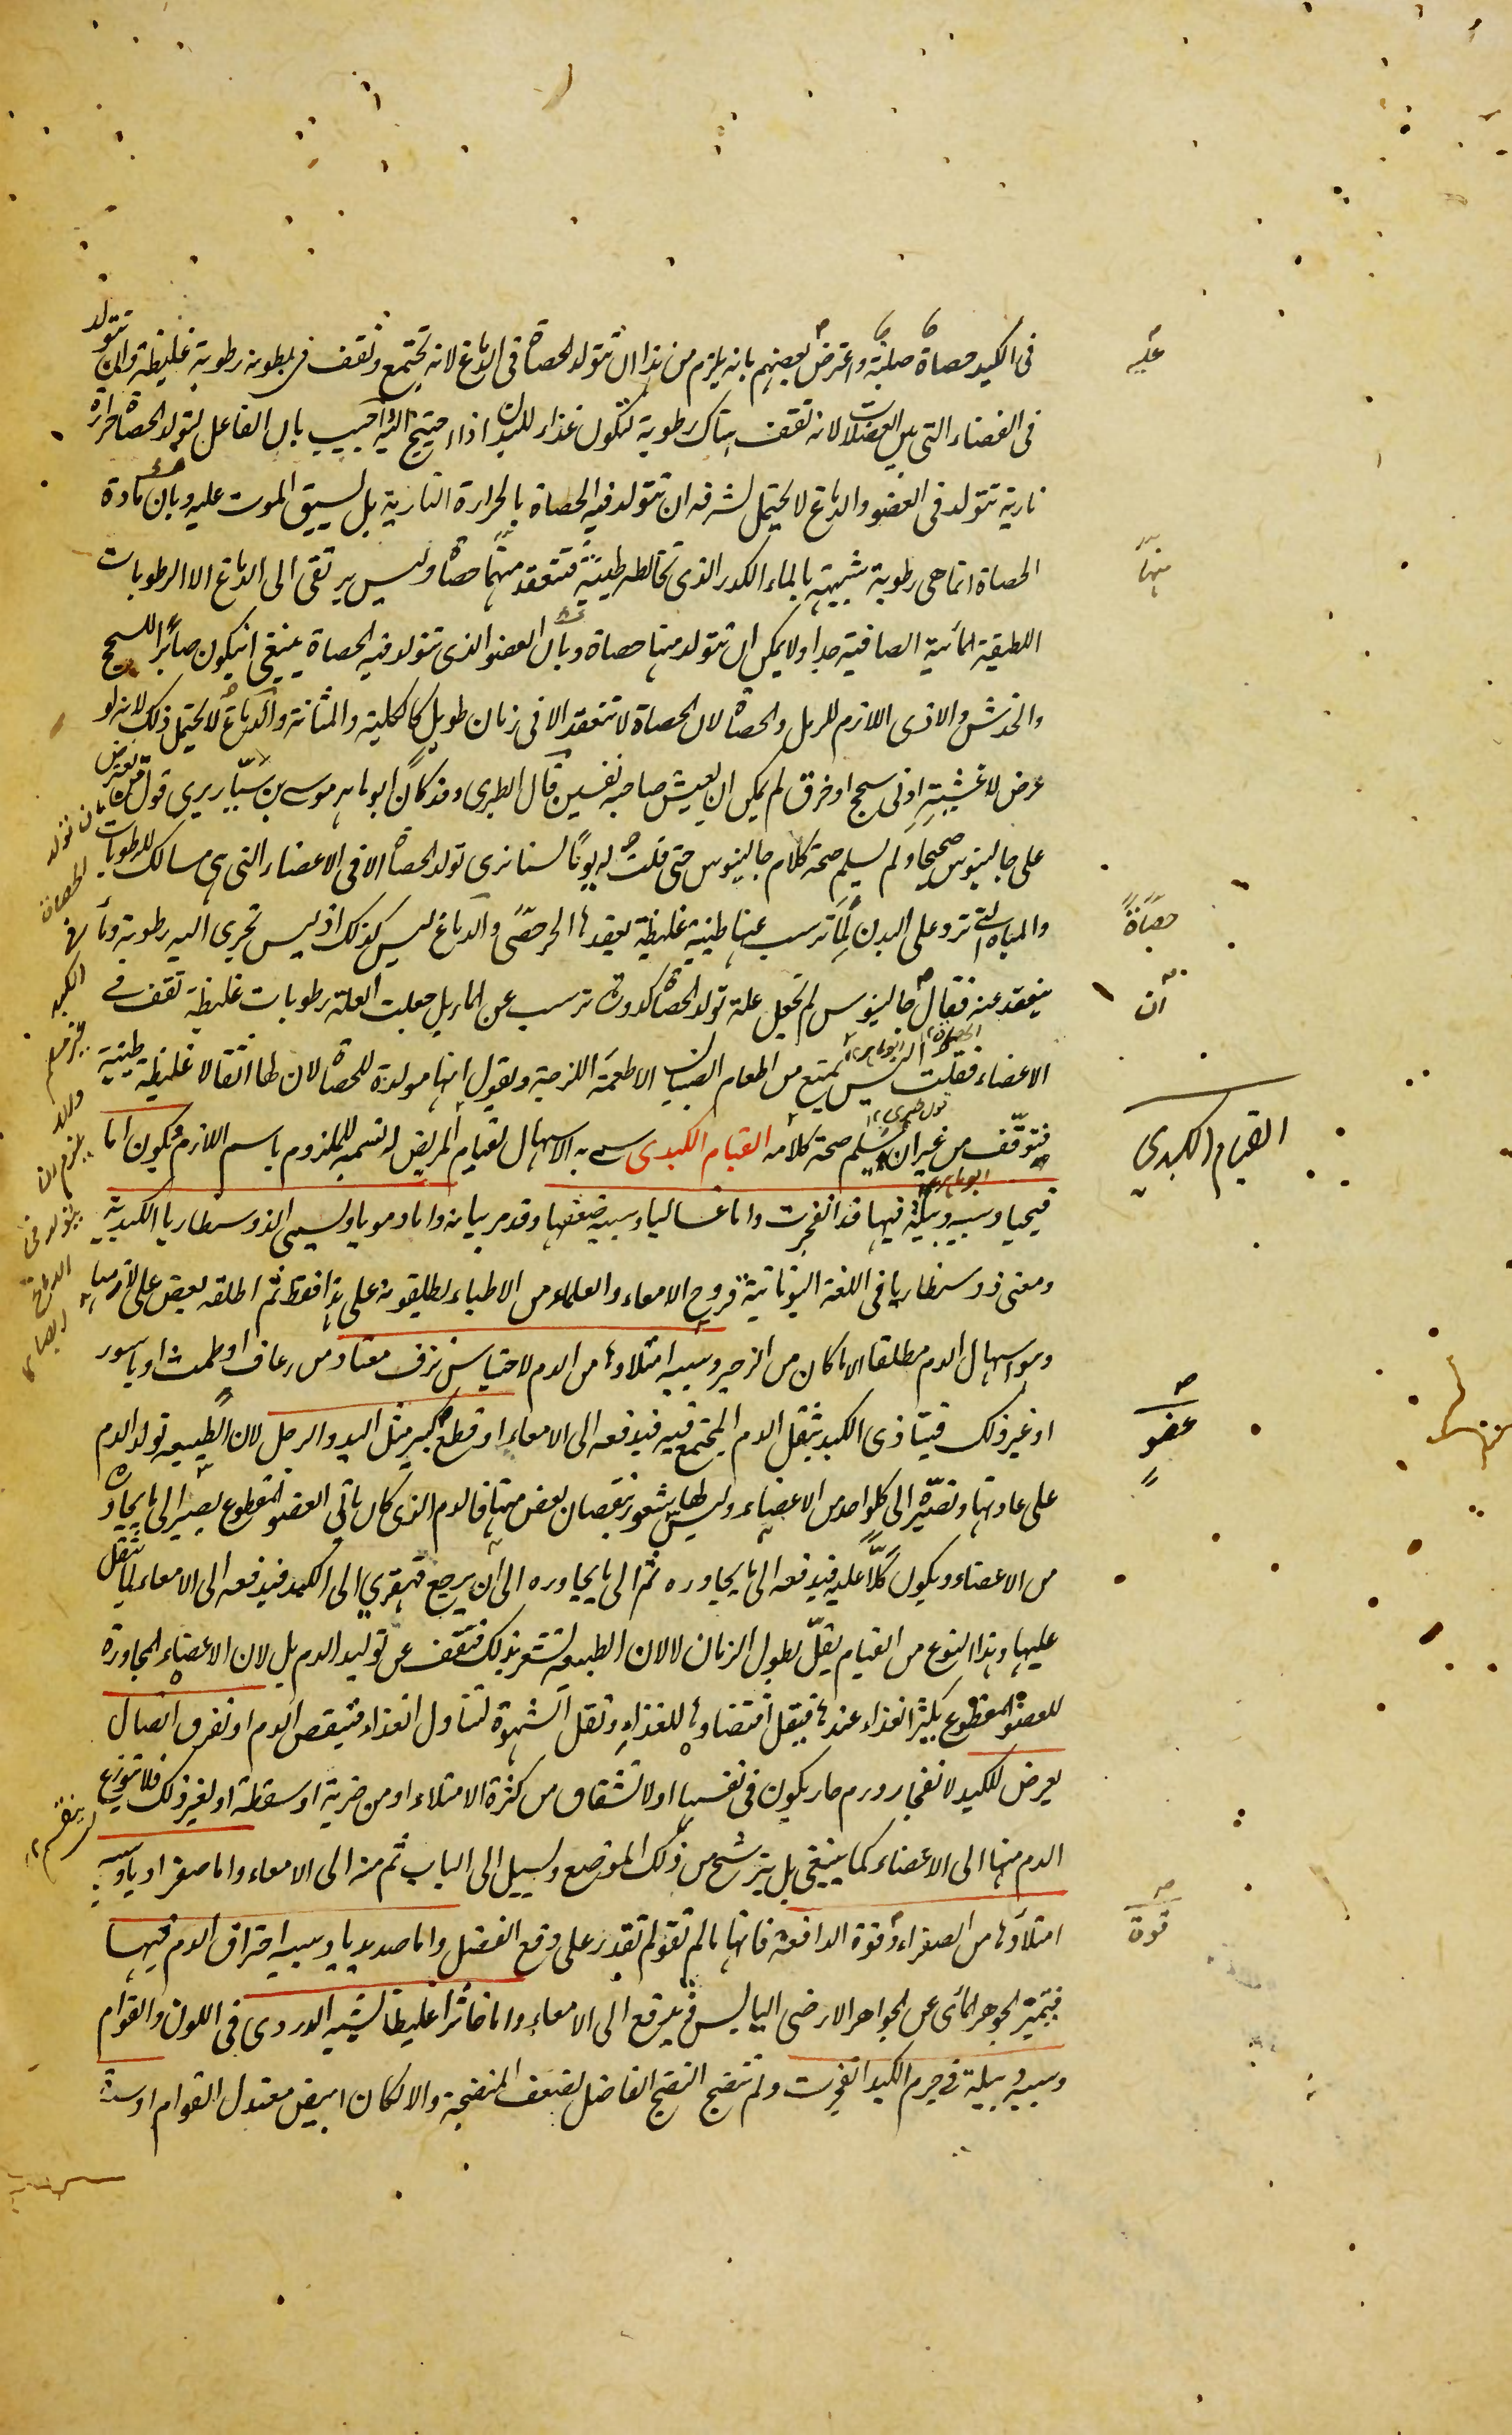 فى الكبد حصاة صلبة واعترض بعضهم بانه يلزم من هذا ان تتولد الحصاة فى الدماغ لانه تجتمع وتقف فى بطونه رطوبة غليظة وان تتولد
عليه
فى الفضاء التى بين العضلات لانه تقف هناك رطوبة لتكون غذاء للبدن اذا احتيج اليه اجيب بان الفاعل لتولد الحصاة حرارة
نارية تتولد فى العضو والدماغ لا يحتمل لشرفه ان تتولد فيه الحصاة بالحرارة النارية بل يسبق الموت عليه وبان مادة
الحصاة انما هى رطوبة شبيهة بالماء الكدر الذى تخالطه طينية فتنعقد منهما حصاة وليس يرتقى الى الدماغ الا الرطوبات
منها
اللطيفة المائية الصافية جدا ولا يمكن ان تتولد منها حصاة وبان العضو الذى تتولد فيه الحصاة ينبغى ان يكون صابرا للسحج
والخدش والاذى اللازم للرمل والحصاة لان الحصاة لا تنعقد الا فى زمان طويل كالكلية والمثانة والدماغ لا يحتمل ذلك لانه لو
عرض لاغشيته ادنى سحج او خرق لم يمكن ان يعيش صاحبه نفسين قال الطبرى وقد كان ابو ماهر موسى بن سيار يرى قول من يعترض
على جالينوس صحيحا ولم يسلم صحة كلام جالينوس حتى قلت له يوما لسنا نرى تولد الحصاة الا فى الاعضاء التى هى مسالك للرطوبات
والمياه التى ترد على البدن لما ترسب عنها طينية غليظة يعقدها الحر حصى والدماغ ليس كذلك اذ ليس تجرى اليه رطوبة وماء
حصاة
ينعقد عنه فقال جالينوس لم تجعل علة تولد الحصاة كدورة ترسب عن الماء بل جعلت العلة رطوبات غليظة تقف فى
ان
الاعضاء فقلت اليس تمنع من اطعام الصبيان الاطعمة اللزجة وتقول انها مولدة للحصاة لان لها اثقالا غليظة طينية
فتوقف من غير ان يسلم صحة كلامه القيام الكبدى سمى به الاسهال لقيام المريض له تسمية للملزوم باسم اللازم ويكون اما
القيام الكبدي
قيحيا وسببه دبيلة فيها قد انفجرت واما غساليا وسببه ضعفها وقد مر بيانه واما دمويا ويسمى الذوسنطاريا الكبدية
ومعنى ذوسنطاريا فى اللغة اليونانية قروح الامعاء والعلماء من الاطباء يطلقونه على هذا فقط ثم اطلقه بعض على لازمها
وهو اسهال الدم مطلقا الا ما كان من الزحير وسببه امتلاؤها من الدم لاحتباس نزف معتاد من رعاف او طمث او باسور
او غير ذلك فيتاذى الكبد بثقل الدم المجتمع فيه فيدفعه الى الامعاء او قطع كبير مثل اليد والرجل لان الطبيعة تولد الدم
عضو
على عادتها وتصيره الى كل واحد من الاعضاء وليس لها شعور بنقصان بعض منها فالدم الذى كان ياتى العضو المقطوع يصير الى ما يجاوره
من الاعضاء ويكون كلا عليه فيدفعه الى ما يجاوره ثم الى ما يجاوره الى ان يرجع قهقرى الى الكبد فيدفعه الى الامعاء لما يثقل
عليها وهذا النوع من القيام يقل بطول الزمان لا لان الطبيعة تشعر بذلك فتقف عن توليد الدم بل لان الاعضاء المجاورة
للعضو المقطوع يكثر الغذاء عندها فيقل اقتضاؤها للغذاء وتقل الشهوة لتناول الغذاء فينقص الدم او تفرق اتصال
يعرض للكبد لانفجار ورم حار يكون فى نفسها او لانشقاق من كثرة الامتلاء او من ضربة او سقطة او لغير ذلك فلا يتوزع
الدم منها الى الاعضاء كما ينبغى بل يترشح من ذلك الموضع ويسيل الى الباب ثم منه الى الامعاء واما صفراويا وسببه
امتلاؤها من الصفراء وقوة الدافعة فانها ما لم تقو لم تقدر على دفع الفضل واما صديديا وسببه احتراق الدم فيها
قوة
فيتميز الجوهر المائى عن الجوهر الارضى اليابس فيدفع الى الامعاء واما خاثرا غليظا يشبه الدردى فى اللون والقوام
وسببه دبيلة فى جرم الكبد انفجرت ولم تنضج النضج الفاضل لضعف المنضجة والا لكان ابيض معتدل القوام او سدة